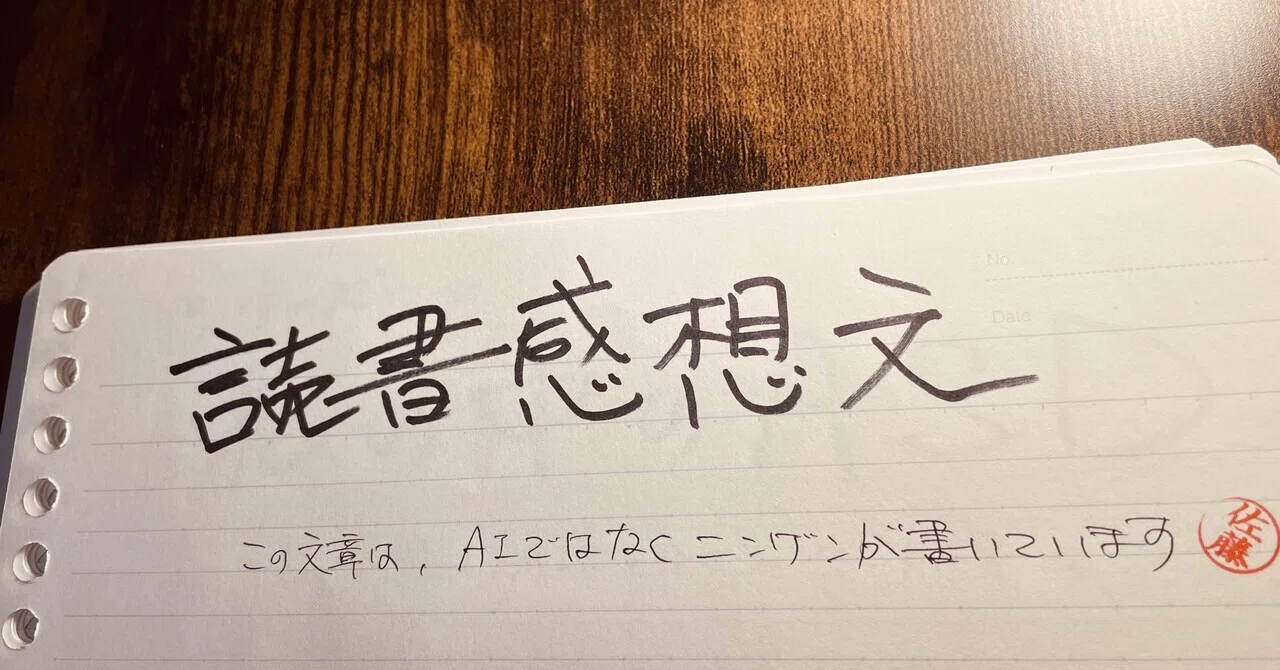 No.
Date
読書感想文
この文章は、AIではなくニンゲンが書いています
佐藤